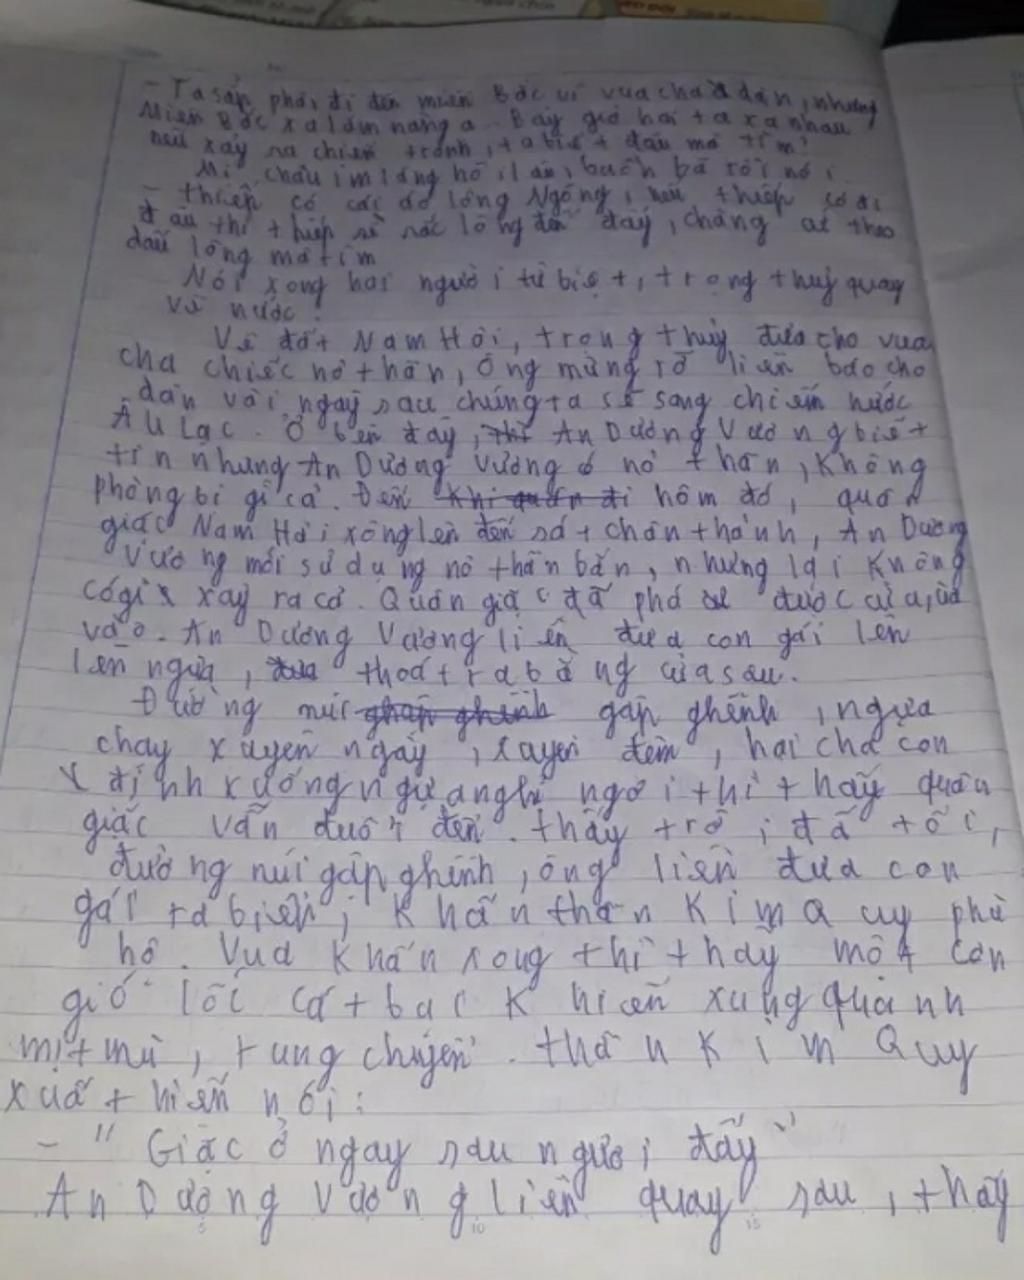 - Ta sắp phải đi đến miền Bắc vì vua cha dặn, nhưng
Miền Bắc xa lắm nàng ạ. Bây giờ hai ta xa nhau
nếu xảy ra chiến tranh, ta biết đâu mà tìm?
Mị Châu im lặng hồi lâu, buồn bã rồi nói:
- Thiếp có cái áo lông Ngỗng, nếu thiếp có đi
đâu thì thiếp sẽ rắc lông đến đấy, chàng cứ theo
dấu lông mà tìm
Nói xong hai người từ biệt, trọng thuỷ quay
về nước.
Về đất Nam Hải, trọng thuỷ đưa cho vua
cha chiếc nỏ thần, ông mừng rỡ liền báo cho
dân vài ngày sau chúng ta sẽ sang chiếm nước
Âu Lạc. Ở bên đây, thì An Dương Vương biết
tin nhưng An Dương Vương có nỏ thần, không
phòng bị gì cả. Đến khi quân đi hôm đó, quân
giặc Nam Hải xông lên đến sát chân thành, An Dương
Vương mới sử dụng nỏ thần bắn, nhưng lại không
có gì xảy ra cả. Quân giặc đã phá được cửa, ùa
vào. An Dương Vương liền đưa con gái lên
lên ngựa, đưa thoát ra bằng cửa sau.
Đường núi ghập ghềnh gập ghềnh, ngựa
chạy xuyên ngày, xuyên đêm, hai cha con
định xuống ngựa nghỉ ngơi thì thấy quân
giặc vẫn đuổi đến. thấy trời đã tối,
đường núi gập ghềnh, ông liền đưa con
gái ra biển, khấn thần Kim Quy phù
hộ. Vua khấn xong thì thấy một cơn
gió lốc cát bụi khiến xung quanh
mịt mù, rung chuyển. thần Kim Quy
xuất hiện nói:
- " Giặc ở ngay sau ngươi đấy "
An Dương Vương liền quay sau, thấy